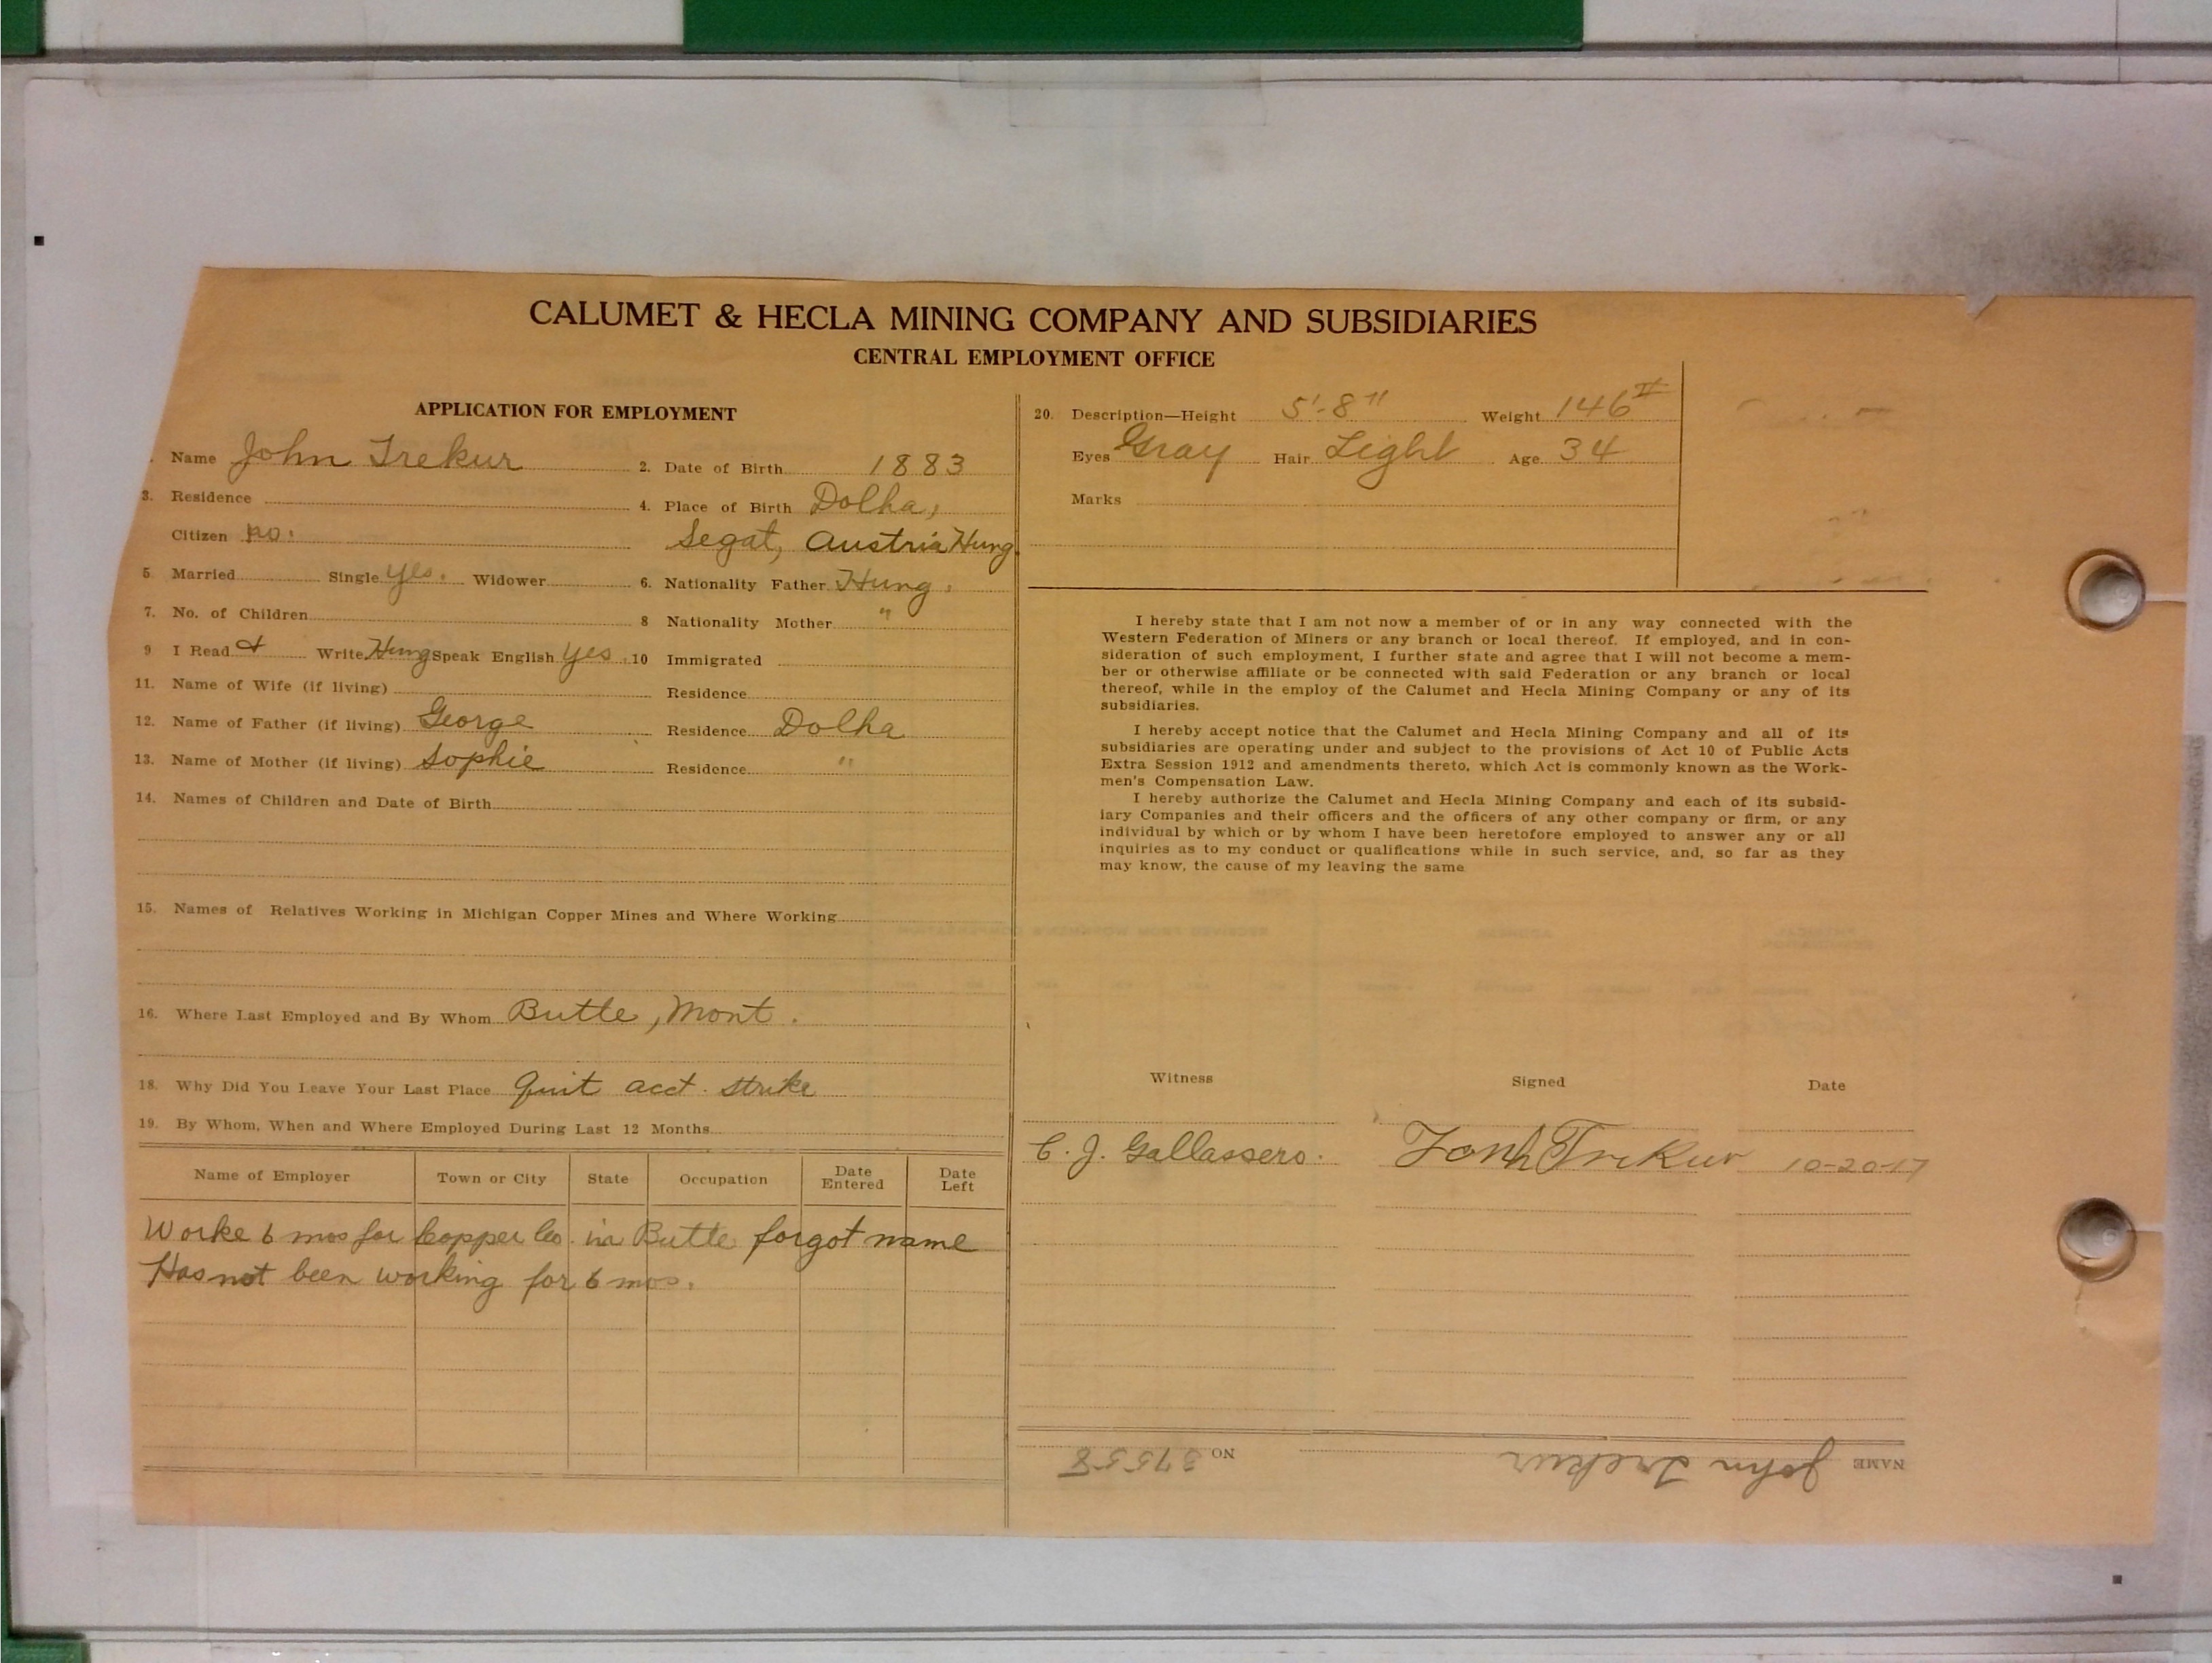 CALUMET & HECLA MINING COMPANY AND SUBSIDIARIES
CENTRAL EMPLOYMENT OFFICE
APPLICATION FOR EMPLOYMENT
Name John Trekur 2. Date of Birth 1883
3. Residence 4. Place of Birth Dolha,
Citizen no. Segat, Austria Hung
5 Married Single yes. Widower 6. Nationality Father Hung.
7. No. of Children 8 Nationality Mother "
9 I Read & Write Hung Speak English yes. 10 Immigrated
11. Name of Wife (if living) Residence
12. Name of Father (if living) George Residence Dolha
13. Name of Mother (if living) Sophie Residence "
14. Names of Children and Date of Birth
15. Names of Relatives Working in Michigan Copper Mines and Where Working
16. Where Last Employed and By Whom Butte, Mont.
18. Why Did You Leave Your Last Place Quit acct. strike
19. By Whom, When and Where Employed During Last 12 Months
Name of Employer Town or City State Occupation Date Entered Date Left
Worke 6 mos for Copper Co. in Butte forgot name
Has not been working for 6 mos.
20. Description—Height 5'-8" Weight 146#
Eyes Gray Hair Light Age 34
Marks
I hereby state that I am not now a member of or in any way connected with the
Western Federation of Miners or any branch or local thereof. If employed, and in con-
sideration of such employment, I further state and agree that I will not become a mem-
ber or otherwise affiliate or be connected with said Federation or any branch or local
thereof, while in the employ of the Calumet and Hecla Mining Company or any of its
subsidiaries.
I hereby accept notice that the Calumet and Hecla Mining Company and all of its
subsidiaries are operating under and subject to the provisions of Act 10 of Public Acts
Extra Session 1912 and amendments thereto, which Act is commonly known as the Work-
men's Compensation Law.
I hereby authorize the Calumet and Hecla Mining Company and each of its subsid-
iary Companies and their officers and the officers of any other company or firm, or any
individual by which or by whom I have been heretofore employed to answer any or all
inquiries as to my conduct or qualifications while in such service, and, so far as they
may know, the cause of my leaving the same
Witness Signed Date
C. J. Gallassero. Tonh Trekur 10-20-17
NAME John Trekur NO 37558